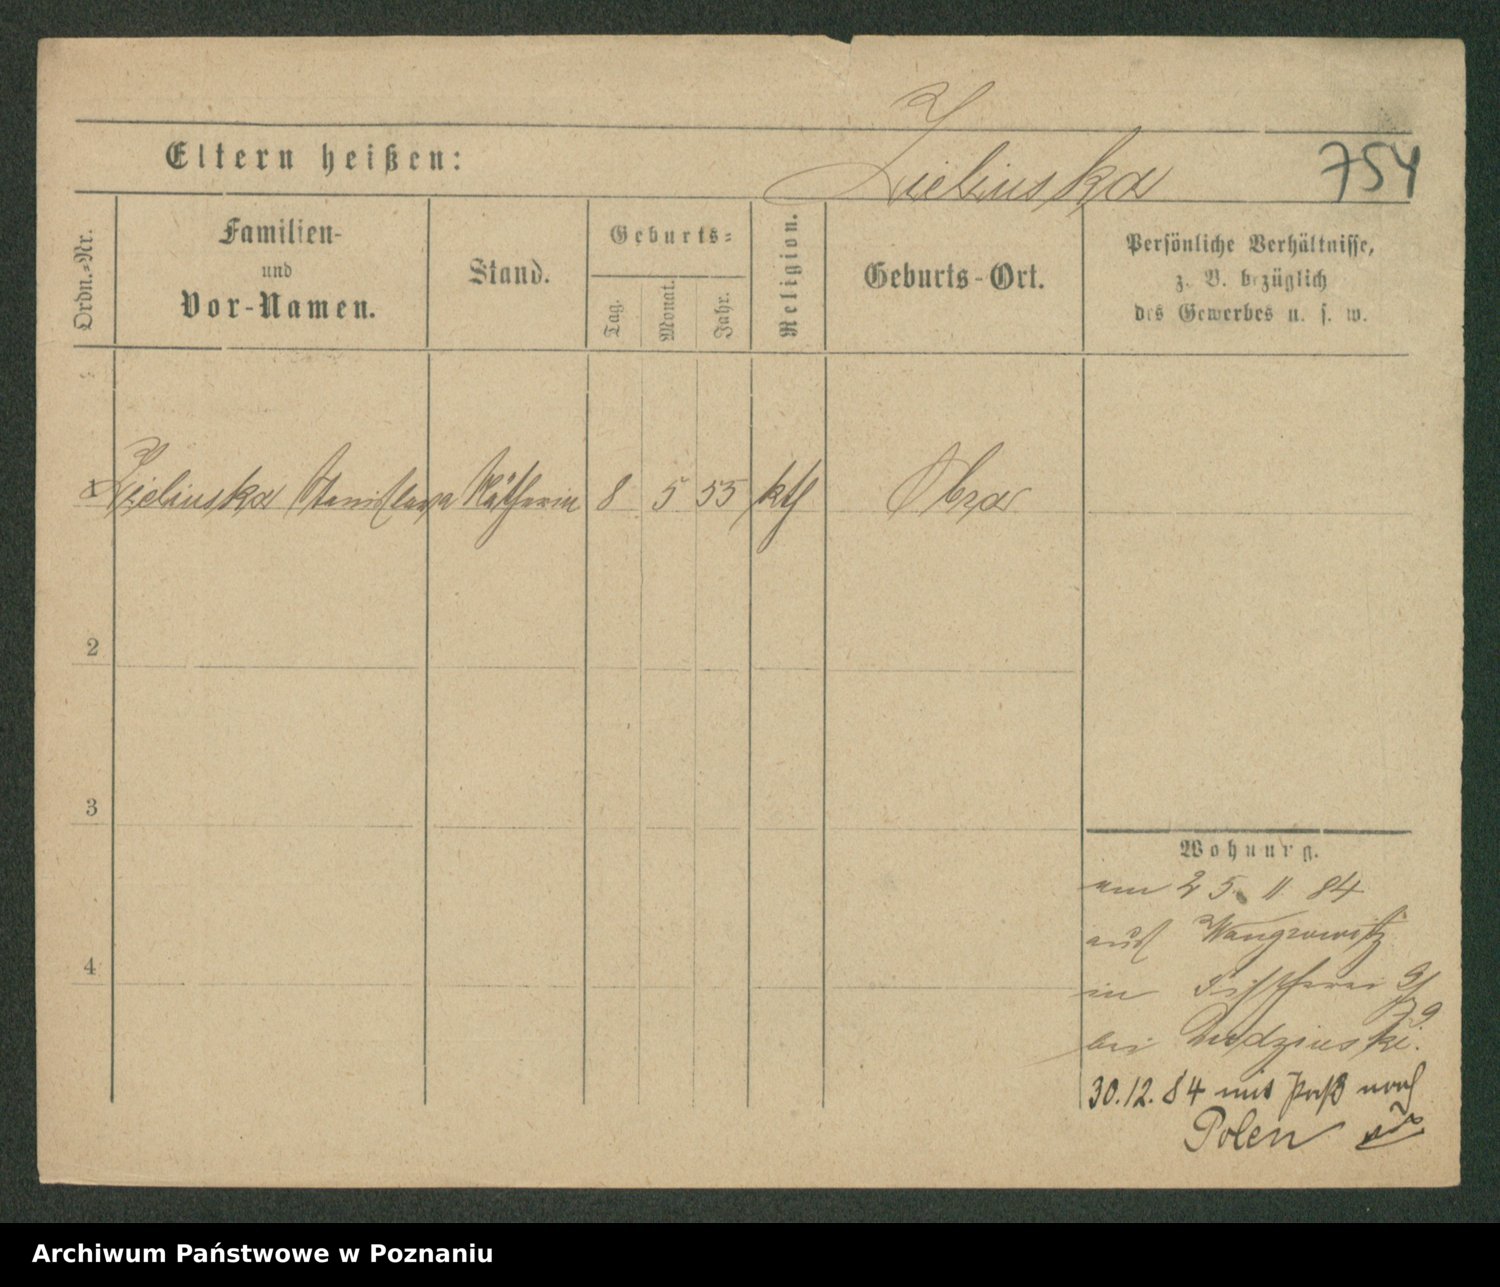 Eltern heißen:
Zielinska
754
Ordn.-Nr.
Familien-
und
Vor-Namen.
Stand.
Geburts-
Tag.
Monat.
Jahr.
Religion.
Geburts-Ort.
Persönliche Verhältnisse,
z. B. bezüglich
des Gewerbes u. s. w.
1 Zielinska Stanislawa Nätherin 8 5 55 kth Obra
2
3
4
Wohnung.
am 25. 11 84
aus Wangrowitz
in Fischerei
bei Dudzinski.
30.12.84 mit Paß nach
Polen
Archiwum Państwowe w Poznaniu